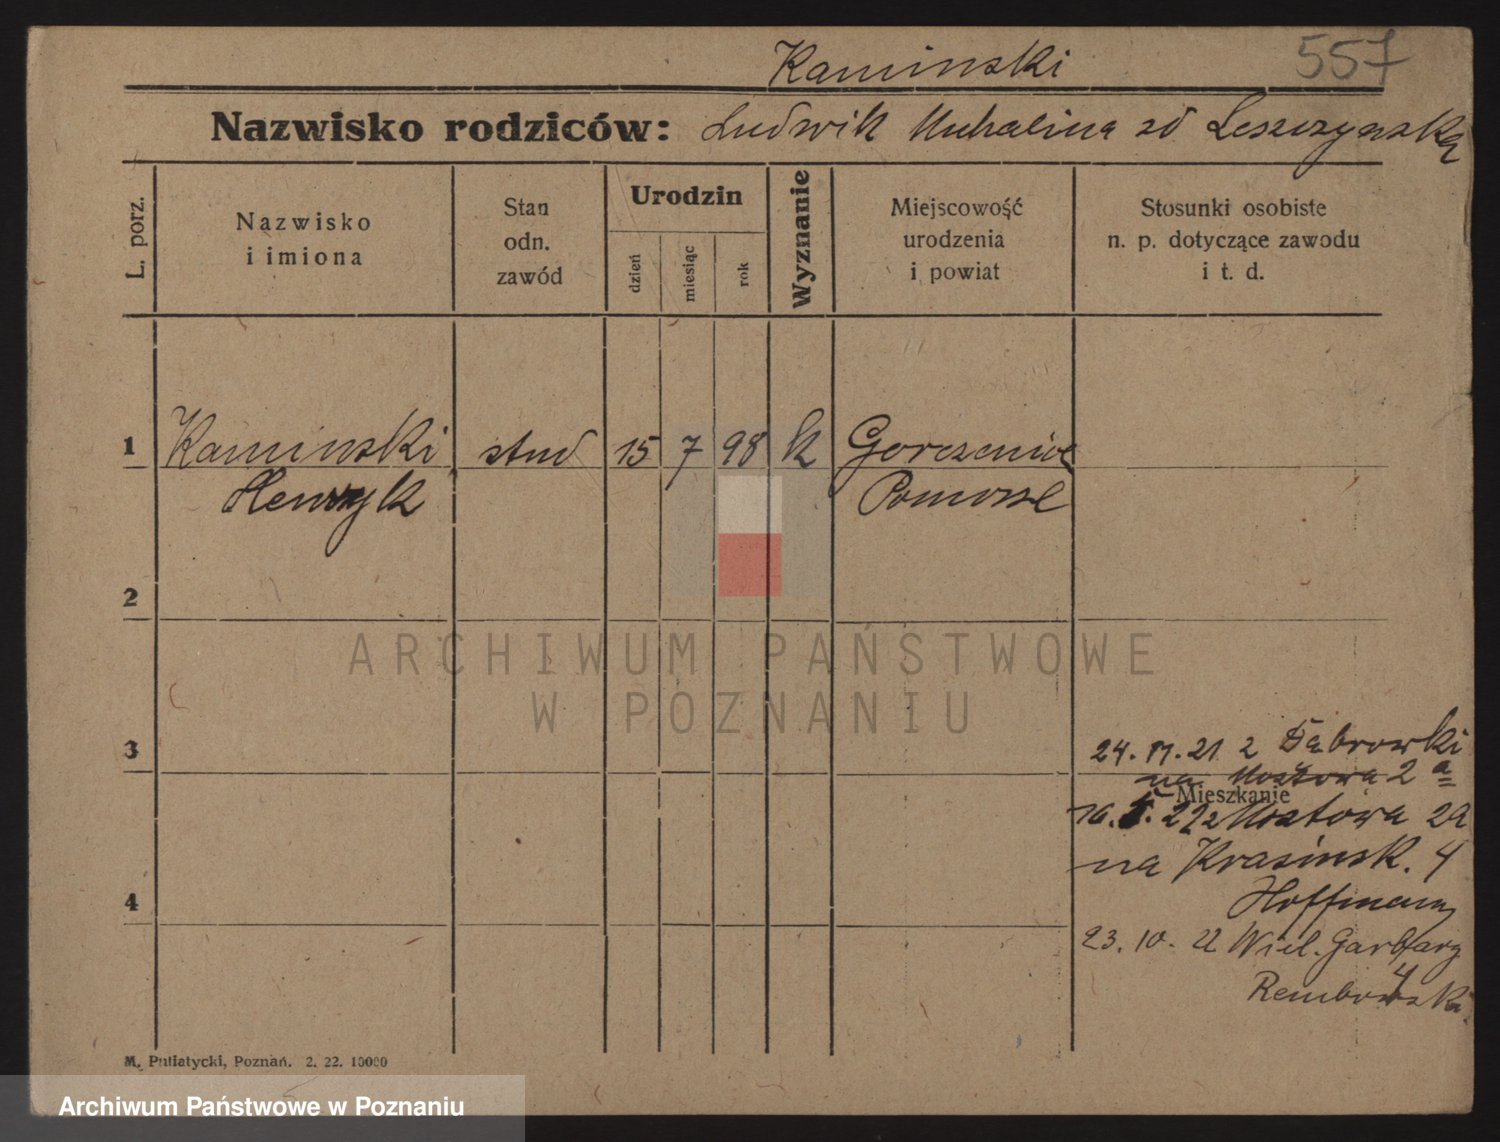 Kaminski 557
Nazwisko rodziców: Ludwik Michalina zd Leszczynska
L. porz.
Nazwisko
i imiona
Stan
odn.
zawód
Urodzin
dzień
miesiąc
rok
Wyznanie
Miejscowość
urodzenia
i powiat
Stosunki osobiste
n. p. dotyczące zawodu
i t. d.
1 Kaminski stud 15 7 98 k Gorczenica
Henryk Pomorze
2
3
24. 11. 21 z Dąbrowski
na Mostowa 2 a
Mieszkanie
16. 5. 22 z Mostowa 2a
na Krasinsk. 4
4
Hoffmann
23. 10. 22 Wiel. Garbary
4
Rembowski
M. Putiatycki, Poznań. 2. 22. 10000
ARCHIWUM PAŃSTWOWE
W POZNANIU
Archiwum Państwowe w Poznaniu